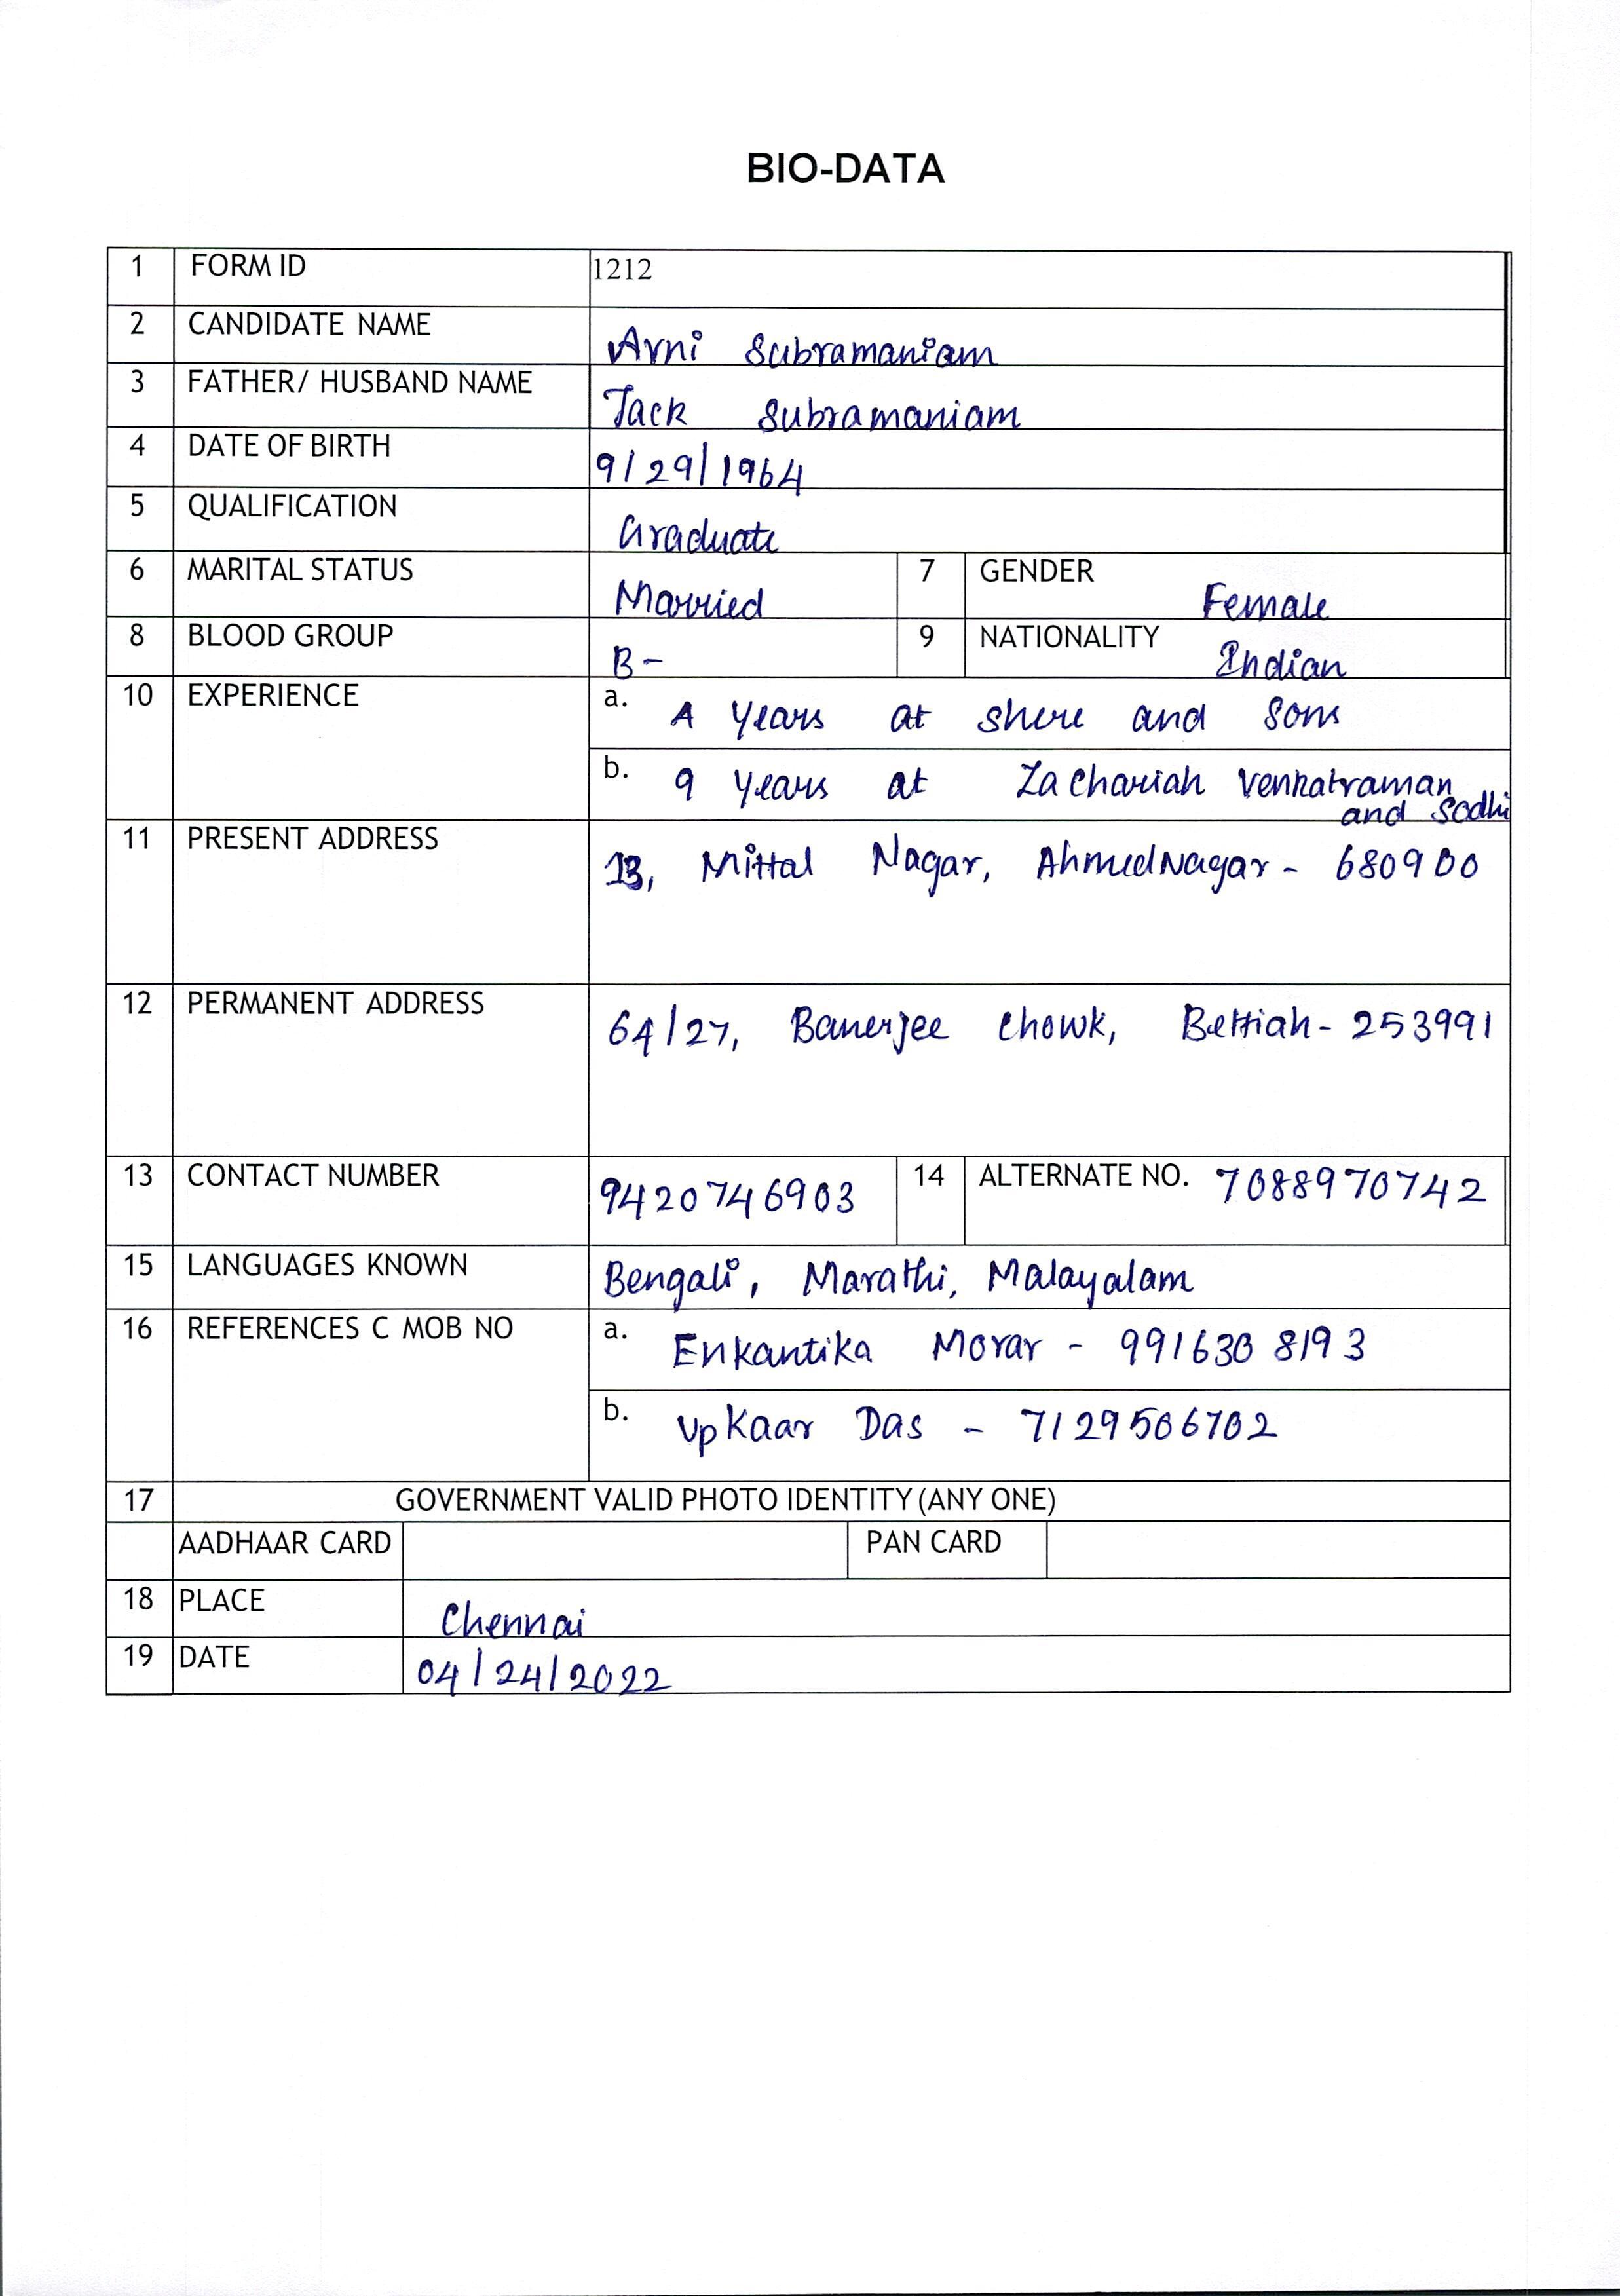 BIO-DATA
1 FORM ID 1212
2 CANDIDATE NAME Avni Subramaniam
3 FATHER/ HUSBAND NAME Jack Subramaniam
4 DATE OF BIRTH 9/29/1964
5 QUALIFICATION Graduate
6 MARITAL STATUS Married 7 GENDER Female
8 BLOOD GROUP B- 9 NATIONALITY Indian
10 EXPERIENCE a. 4 years at shere and Sons
b. 9 years at Zachariah Venkatraman
and Sodhi
11 PRESENT ADDRESS 13, Mittal Nagar, AhmedNagar - 680900
12 PERMANENT ADDRESS 64/27, Banerjee Chowk, Bettiah - 253991
13 CONTACT NUMBER 9420746903 14 ALTERNATE NO. 7088970742
15 LANGUAGES KNOWN Bengali, Marathi, Malayalam
16 REFERENCES C MOB NO a. Enkantika Morar - 9916308193
b. UpKaar Das - 7129506702
17 GOVERNMENT VALID PHOTO IDENTITY (ANY ONE)
AADHAAR CARD PAN CARD
18 PLACE Chennai
19 DATE 04/24/2022